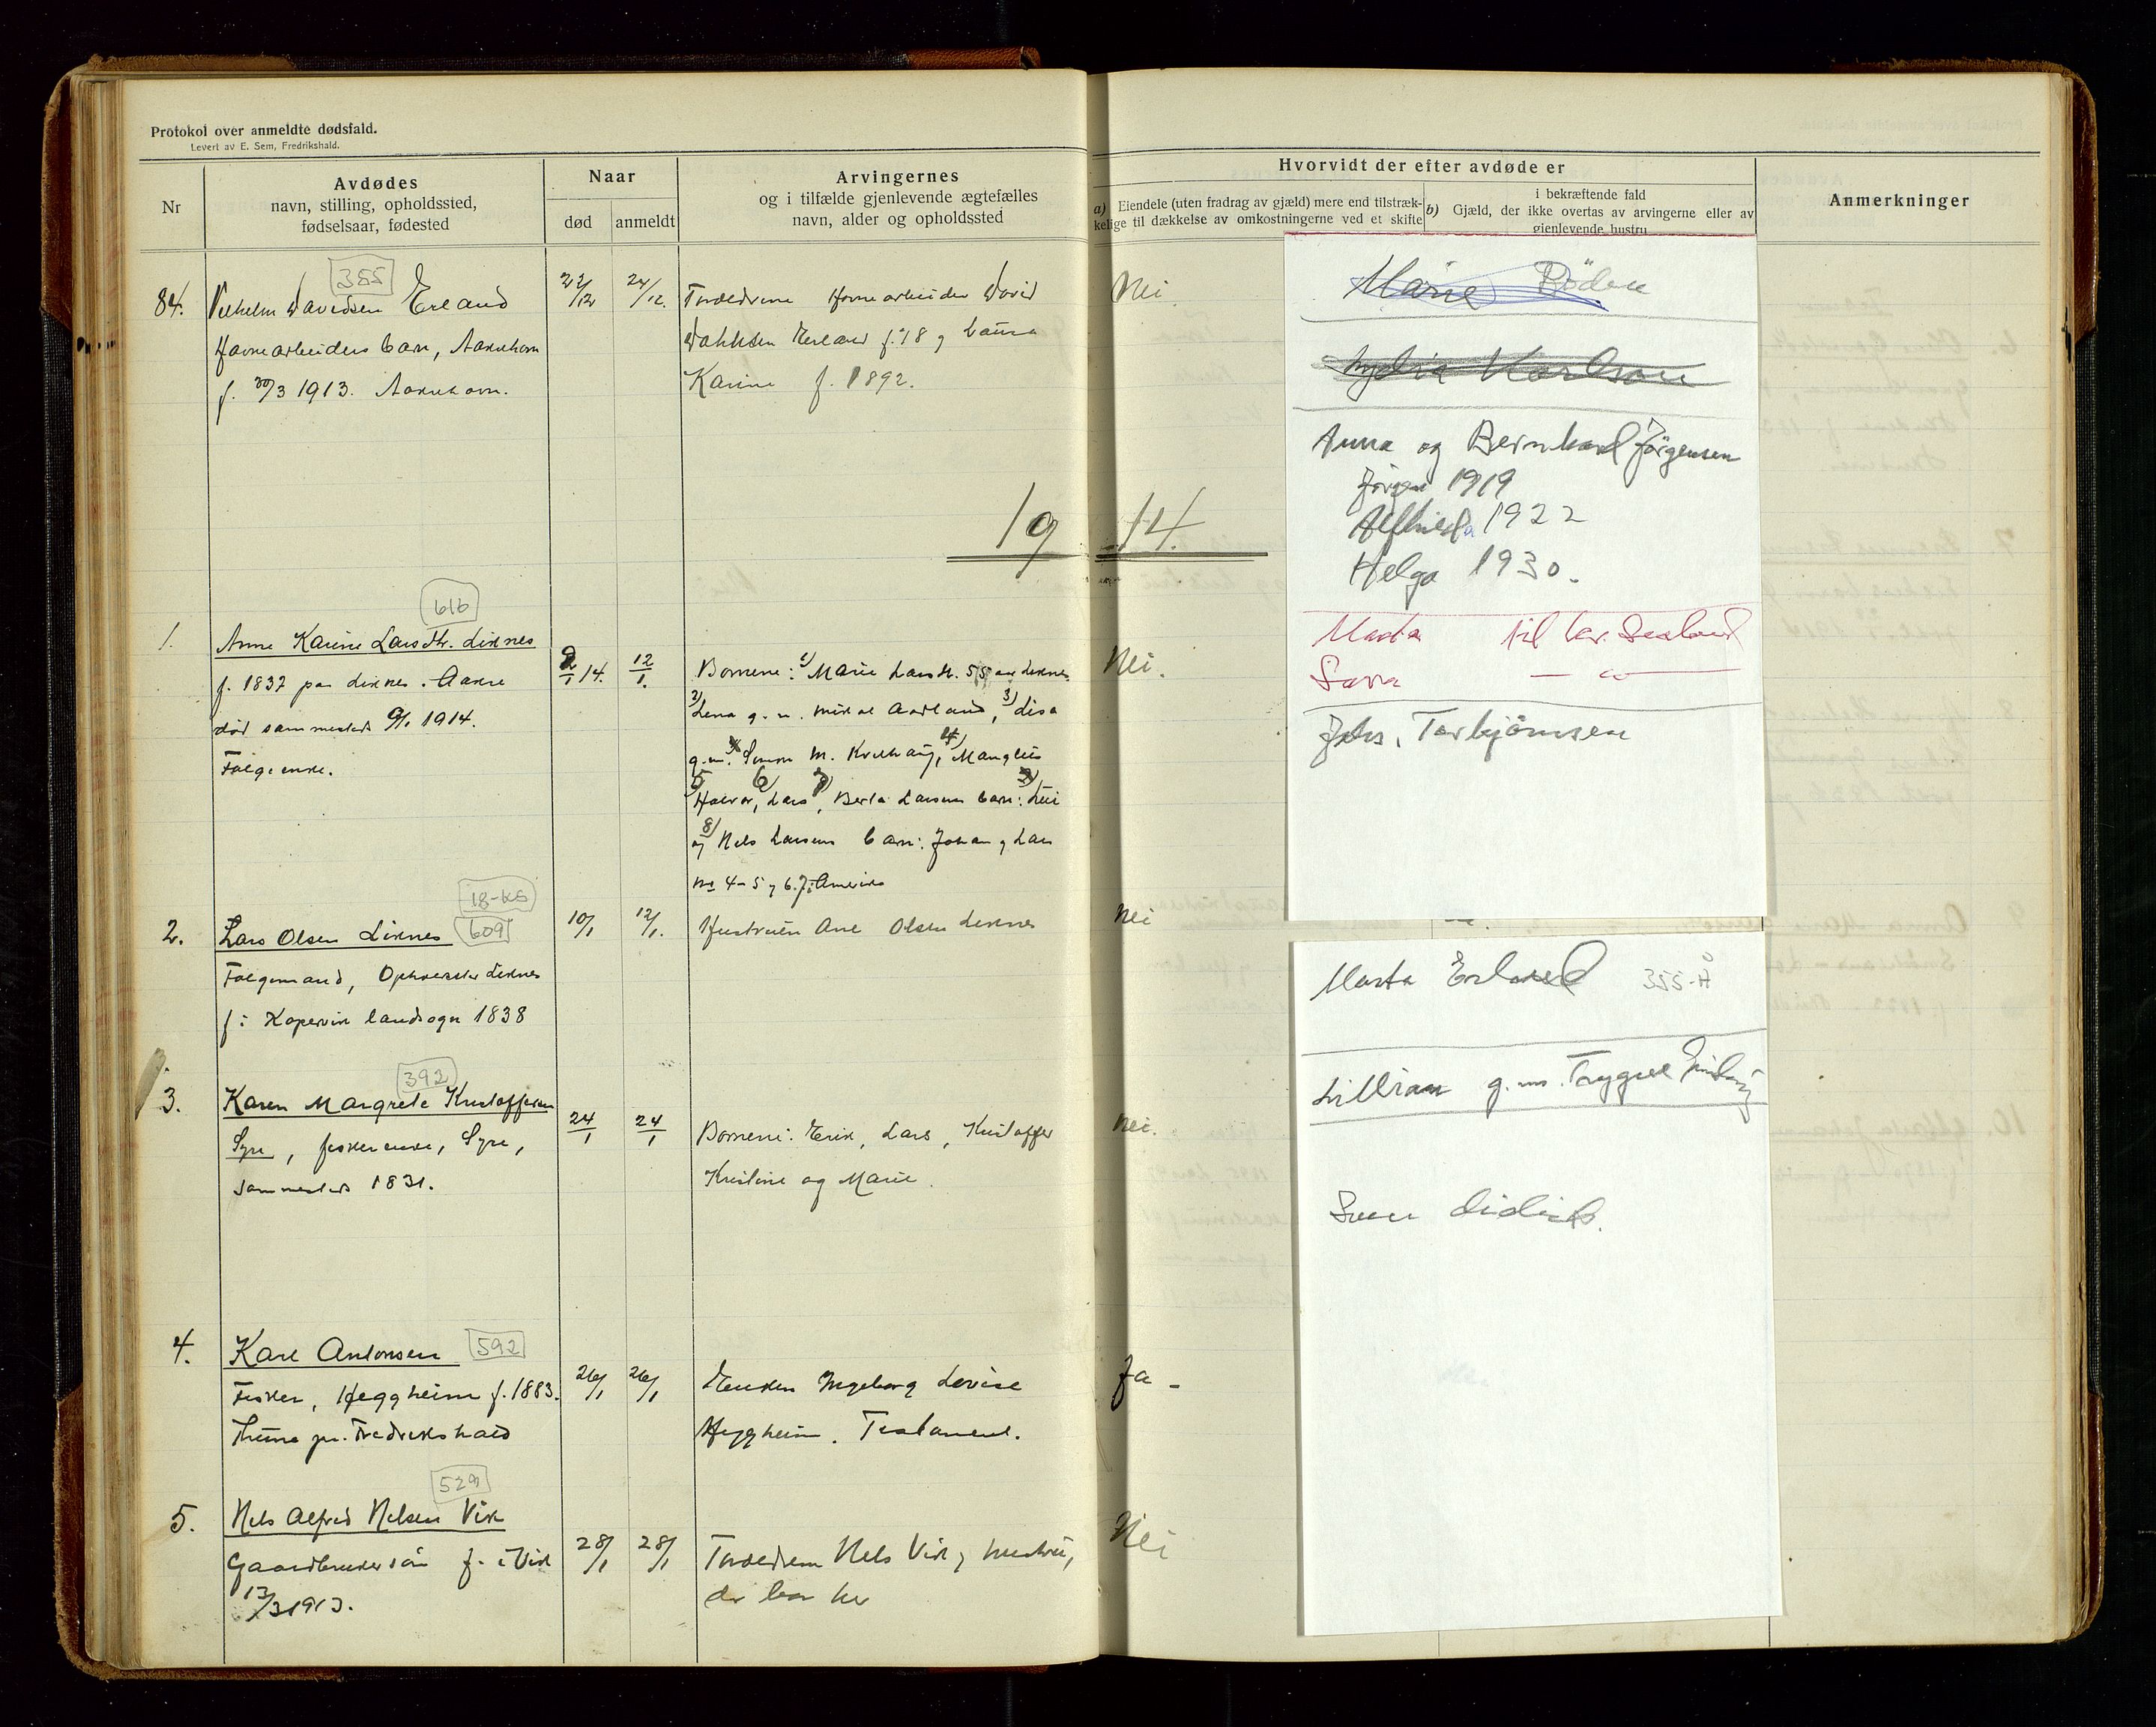 Protokol over anmeldte dødsfald.
Levert av E. Sem, Fredrikshald.
Nr
Avdødes
navn, stilling, opholdssted,
fødselsaar, fødested
Naar
død
anmeldt
Arvingernes
og i tilfælde gjenlevende ægtefælles
navn, alder og opholdssted
Hvorvidt der efter avdøde er
a) Eiendele (uten fradrag av gjæld) mere end tilstræk-
kelige til dækkelse av omkostningerne ved et skifte
i bekræftende fald
b) Gjæld, der ikke overtas av arvingerne eller av
gjenlevende hustru
Anmerkninger
355
84. Vilhelm Davidsen Erland
Havnearbeiders barn, Aakrehavn
f. 30/3 1913. Aakrehavn.
22/12 24/12.
Forældrene Havnearbeider David
Erland f. 78 og Laura
Karine f. 1892.
Nei.
1914.
616
1. Anne Karine Larsdtr. Liknes
f. 1832 paa Liknes. Aakre
død sammesteds 9/1 1914.
Følgeenke.
9/1 14. 12/1.
Børnene: 1) Marie Larsdtr. 55 aar Liknes
2) Lena g. m. Mikal Aadland, 3) Lisa
g. m. Simon M. Kvilhaug, 4) Manglius
5) Halvor, 6) Lars, 7) Berta Larsens barn:
8) og Nels Larsens barn: Johan og Lars
no 4-5 og 6. 7. i Amerika
Nei.
18-KS
609
2. Lars Olsen Liknes
Følgemand, Opholdssted Liknes
f. i Kopervik landsogn 1838
10/1 12/1.
Hustruen Ane Olsen Liknes
Nei
392
3. Karen Margrete Kristoffersen
Syre, fiskerenke, Syre,
sammesteds 1831.
24/1 24/1
Børnene: Erik, Lars, Kristoffer
Kristine og Marie.
Nei.
592
4. Karl Antonsen
Fisker, Heggheim f. 1883.
Thune pr. Fredrikshald
26/1 26/1
Enken Ingeborg Lovise
Heggheim. Testament.
Ja -
529
5. Nels Alfred Nelsen Vik
Gaardbrukersøn f. i Vik
13/3 1913.
28/1 28/1
Forældrene Nels Vik og hustru,
der bor her
Nei
Marie Böden
Lydia Karlson
Anna og Bernhard Jörgensen
Jörgen 1919
Alfhilda 1922
Helga 1930.
Marta til
Sara — " —
Johs. Torbjörnsen
Marta Erland 355-Å
Lillian g. m. Trygve
Sven Didrik.